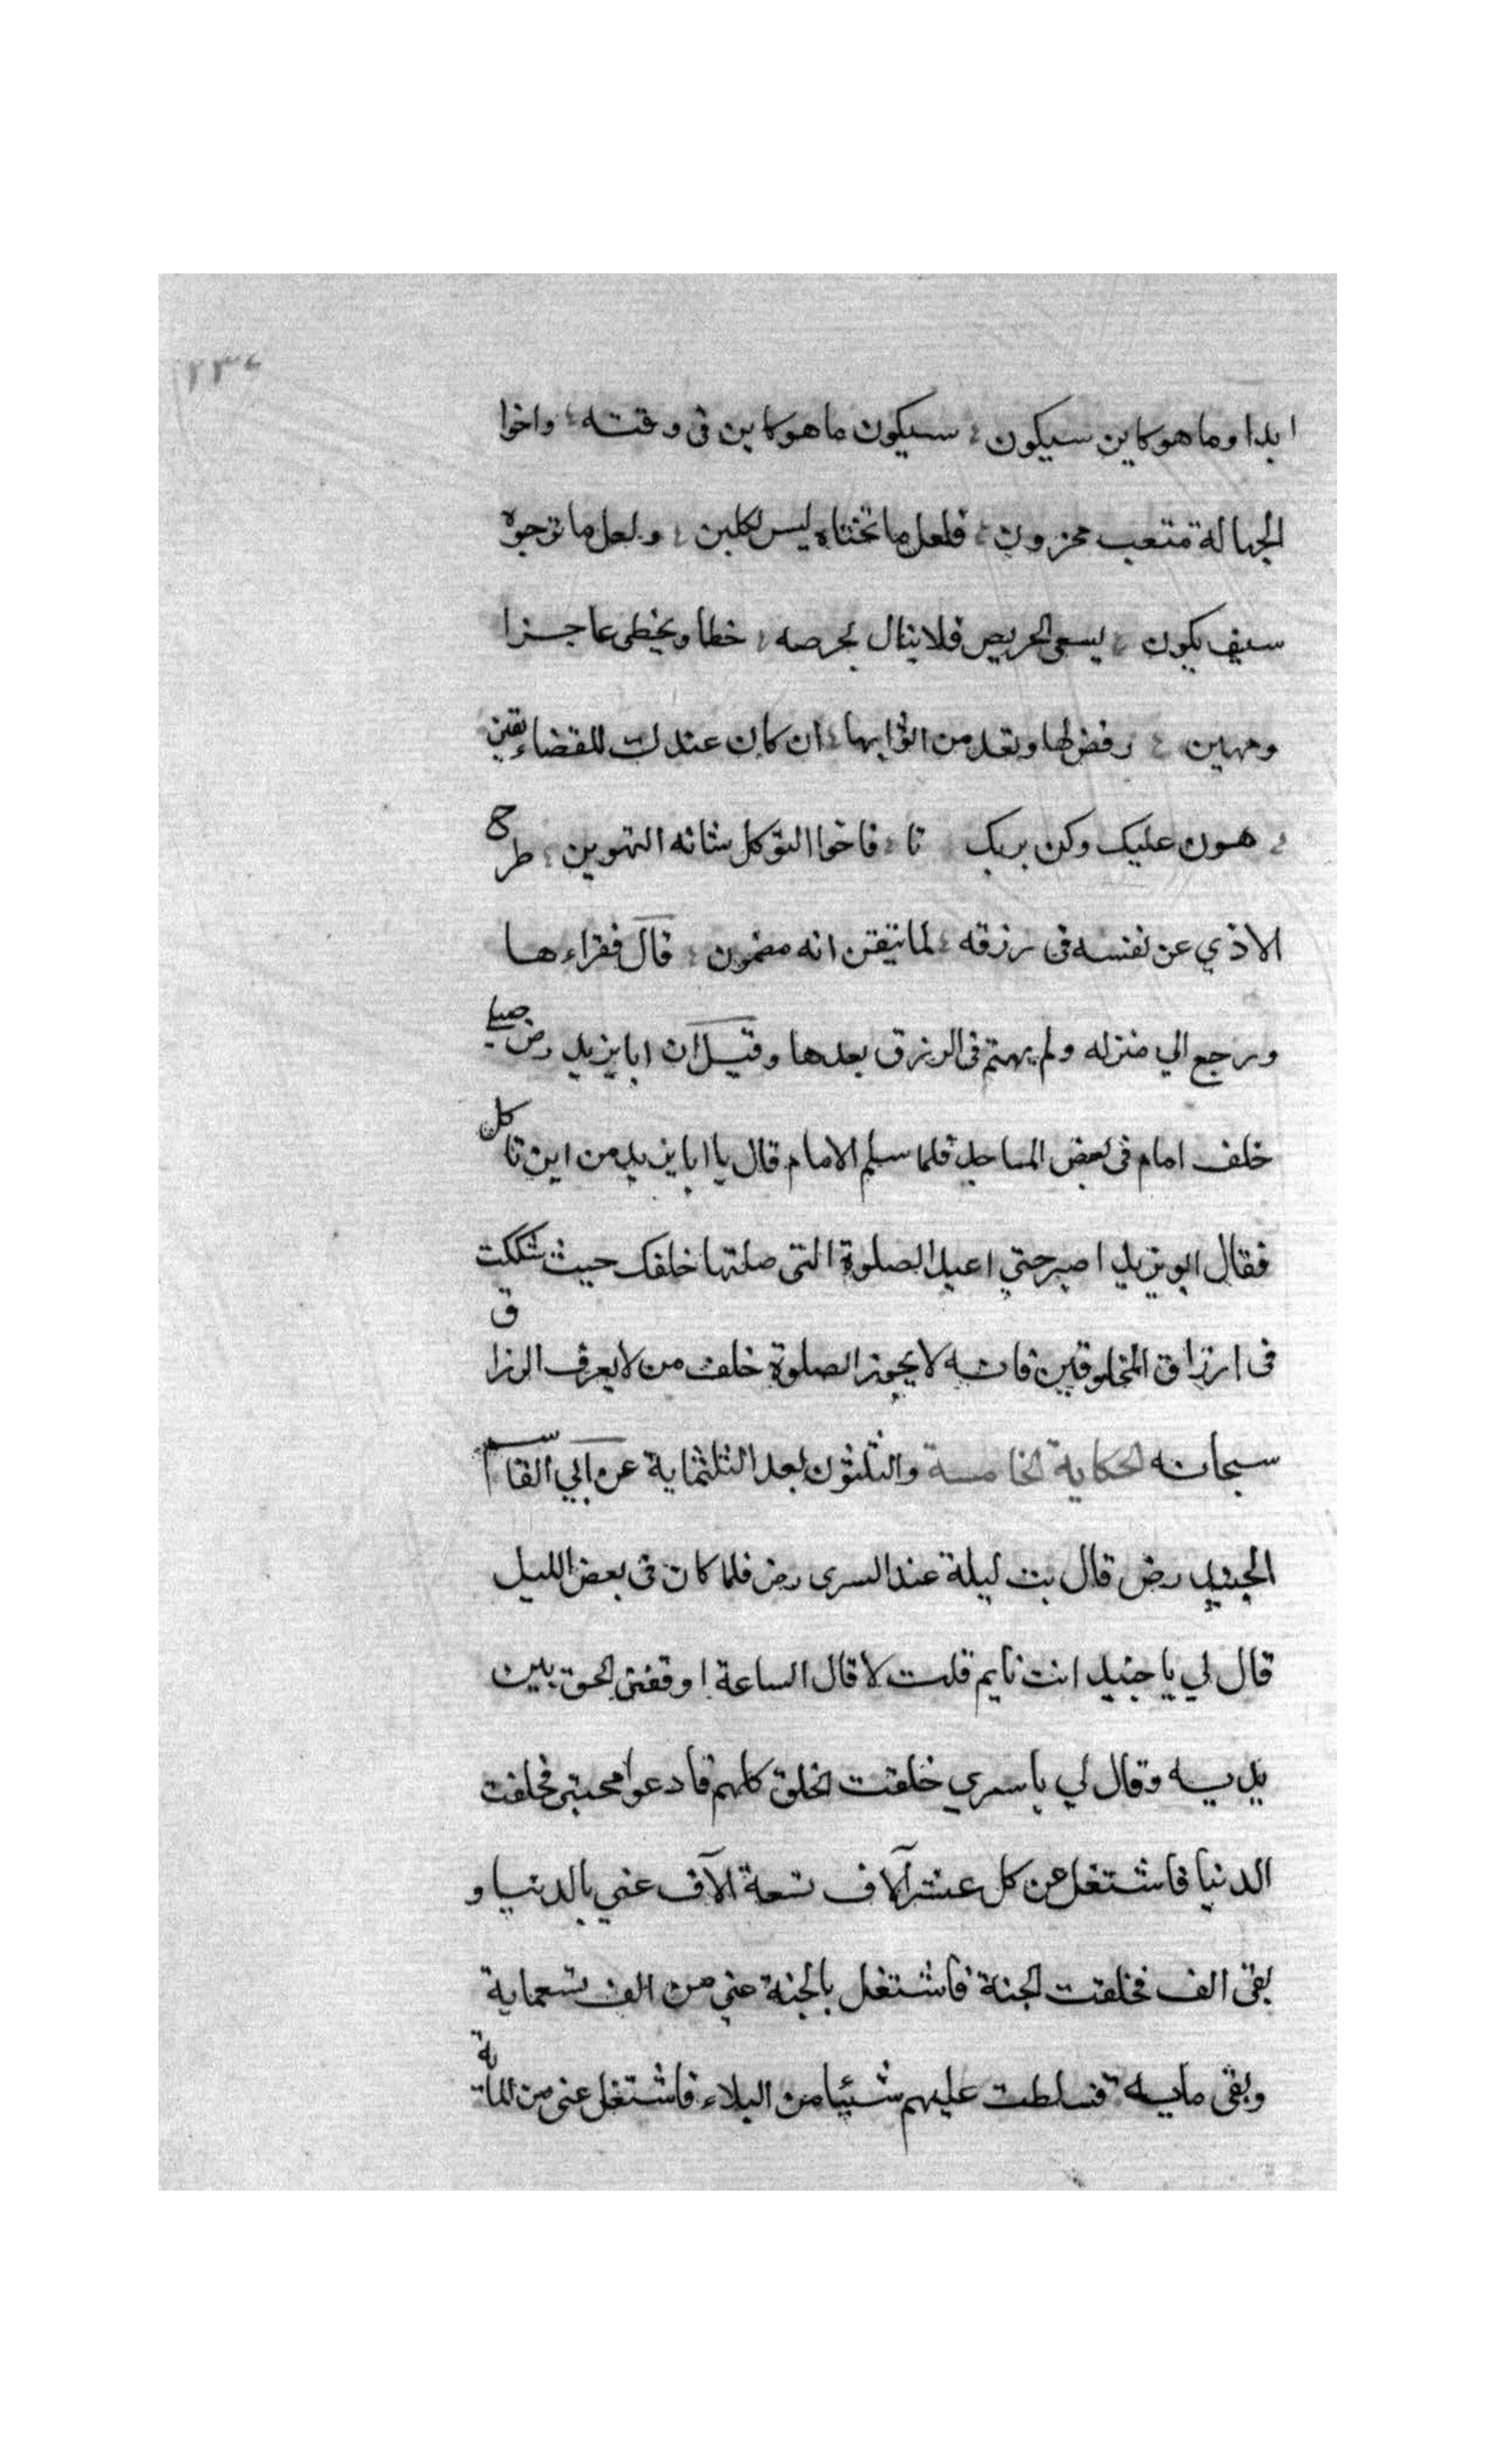 ٢٣٤
ابدا وما هو كاين سيكون ؛ سيكون ما هو كاين فى وقته ؛ واخوا
الجهالة متعب محزون ؛ فلعل ما تخشاه ليس بكاين ؛ ولعل ما ترجوة
سيف يكون ؛ يسعى الحريص فلا ينال بحرصه ؛ خطا ويخطى عاجزا
ومهين ؛ رفض لها وتعد من اثوابها ؛ ان كان عندك للقضاء يقين
؛ هون عليك وكن بربك تا ؛ فاخوا التوكل شانه التهوين ؛ طرح
الاذي عن نفسه فى رزقه ؛ لما تيقن انه مضمون ؛ قال فقراءها
ورجع الي منزله ولم يهتم فى الرزق بعدها وقيل ان ابا يزيد رض صلي
خلف امام فى بعض المساجد فلما سلم الامام قال يا ابا يزيد من اين تاكل
فقال ابو يزيد اصبر حتي اعيد الصلوة التى صلتها خلفك حيث شككت
فى ارزاق المخلوقين فانه لا يجوز الصلوة خلف من لا يعرف الرزاق
سبحانه الحكاية الخامسة والثلثون بعد الثلثماية عن ابي القاسم
الجنيد رض قال بت ليلة عند السرى رض فلما كان فى بعض الليل
قال لي يا جنيد انت نايم قلت لا قال الساعة اوقفنى الحق بين
يديه وقال لي يا سري خلقت الخلق كلهم فادعوا محبتى فخلقت
الدنيا فاشتغل من كل عشر آلاف تسعة آلاف عني بالدنيا و
بقى الف فخلقت الجنة فاشتغل بالجنة عني من الف تسعماية
وبقى مايه فسلطت عليهم شيئا من البلاء فاشتغل عنى من الماية